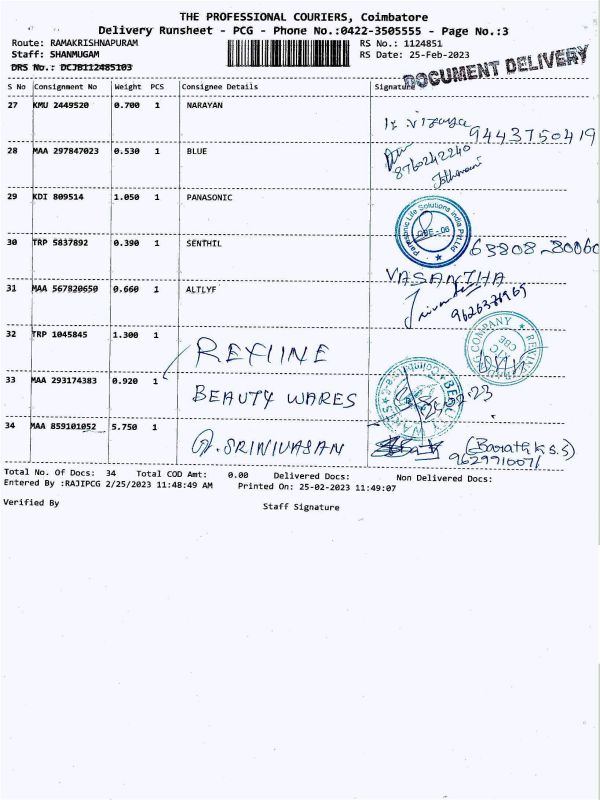 THE PROFESSIONAL COURIERS, Coimbatore
Delivery Runsheet - PCG - Phone No.:0422-3505555 - Page No.:3
Route: RAMAKRISHNAPURAM RS No.: 1124851
Staff: SHANMUGAM RS Date: 25-Feb-2023
DRS No.: DCJB112485103 DOCUMENT DELIVERY
S No Consignment No Weight PCS Consignee Details Signature
27 KMU 2449520 0.700 1 NARAYAN
9443750419
28 MAA 297847023 0.530 1 BLUE
8760242240
29 KDI 809514 1.050 1 PANASONIC
Panasonic Life Solutions India Pvt Ltd
CBE-06
30 TRP 5837892 0.390 1 SENTHIL
63808-80060
31 MAA 567820650 0.660 1 ALTLYF VASANTHA
9626376969
32 TRP 1045845 1.300 1 REXLINE
COMPANY
CBE
33 MAA 293174383 0.920 1 BEAUTY WARES
34 MAA 859101052 5.750 1 A. SRINIVASAN (Barath k s.s)
9629910071
Total No. Of Docs: 34 Total COD Amt: 0.00 Delivered Docs: Non Delivered Docs:
Entered By :RAJIPCG 2/25/2023 11:48:49 AM Printed On: 25-02-2023 11:49:07
Verified By Staff Signature